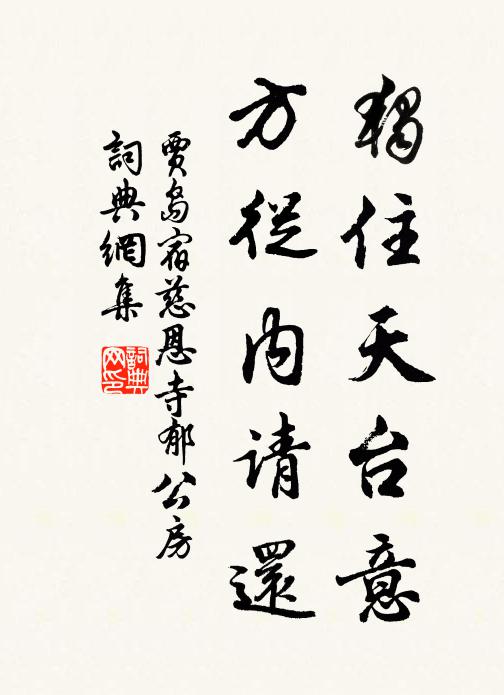 獨住天台意
方從内请還
賈島宿慈恩寺郁公房
詞典網集
詞典网印